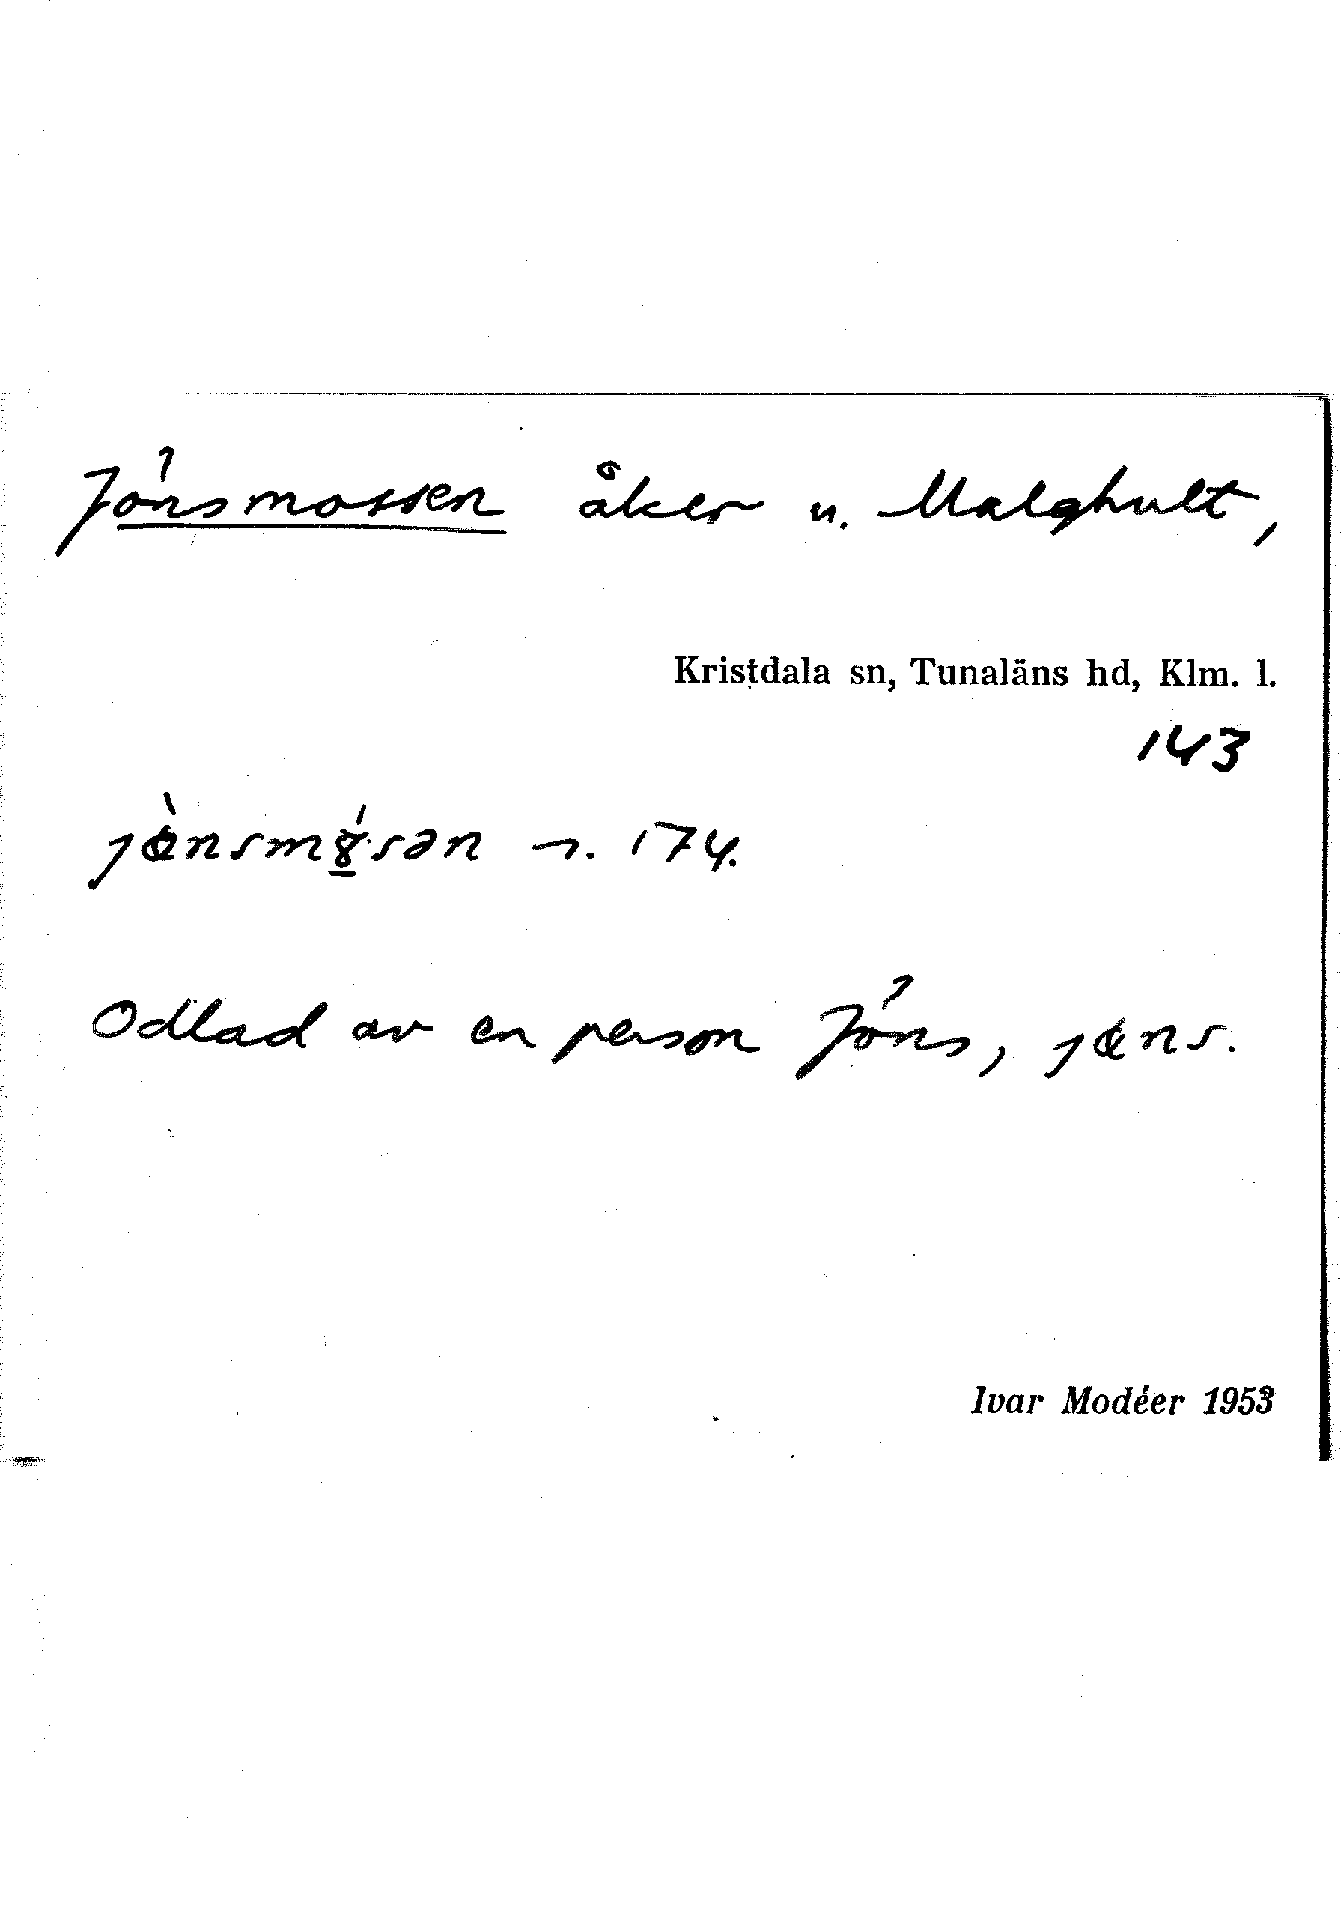 Jönsmossen åker u. Malghult,
Kristdala sn, Tunaläns hd, Klm. l.
143
174.
Odlad av en person Jöns,
Ivar Modéer 1953